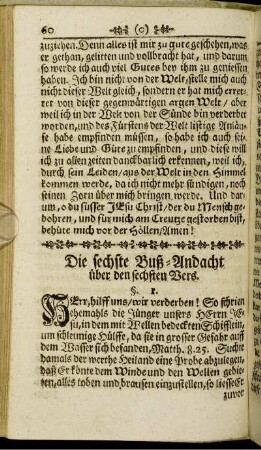 60 (0)
zuziehen. Denn alles ist mir zu gute geschehen, was
er gethan, gelitten und vollbracht hat, und darum
so werde ich auch viel Gutes bey ihm zu geniessen
haben. Ich bin nicht von der Welt, stelle mich auch
nicht dieser Welt gleich, sondern er hat mich erret-
tet von dieser gegenwärtigen argen Welt / aber
weil ich in der Welt von der Sünde bin verderbet
worden, und des Fürstens der Welt listige Anläuf-
fe habe empfinden müssen, so habe ich auch sei-
ne Liebe und Güte zu empfinden, und diese will
ich zu allen zeiten danckbarlich erkennen, weil ich,
durch sein Leiden / aus der Welt in den Himmel
kommen werde, da ich nicht mehr sündigen, noch
seinen Zorn über mich bringen werde. Und dar-
um, o du süsser JEsu Christ / der du Mensch ge-
bohren, und für mich am Creutze gestorben bist,
behüte mich vor der Höllen / Amen!
Die sechste Buß-Andacht
über den sechsten Vers.
§. 1.
HErr, hilff uns / wir verderben! So schrien
ehemahls die Jünger unsers HErrn JE-
su, in dem mit Wellen bedeckten Schifflein,
um schleunige Hülffe, da sie in grosser Gefahr auff
dem Wasser sich befanden, Matth. 8. 25. Suchte
damals der werthe Heiland eine Probe abzulegen,
daß Er könte dem Winde und den Wellen gebie-
ten, alles toben und brausen einzustellen, so liesse Er
zuvor